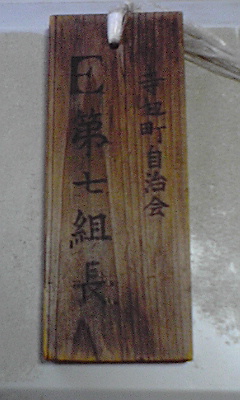 寺田町自治会
E第七組長